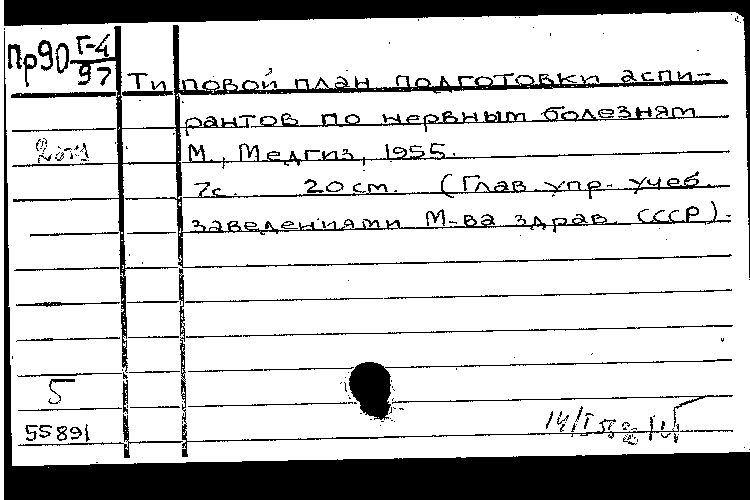 Пр90 Г-4
97
Типовой план подготовки аспи-
рантов по нервным болезням
М., Медгиз, 1955.
7с. 20 см. (Глав. упр. учеб.
заведениями М-ва здрав. СССР).
5
55891
14/I 56